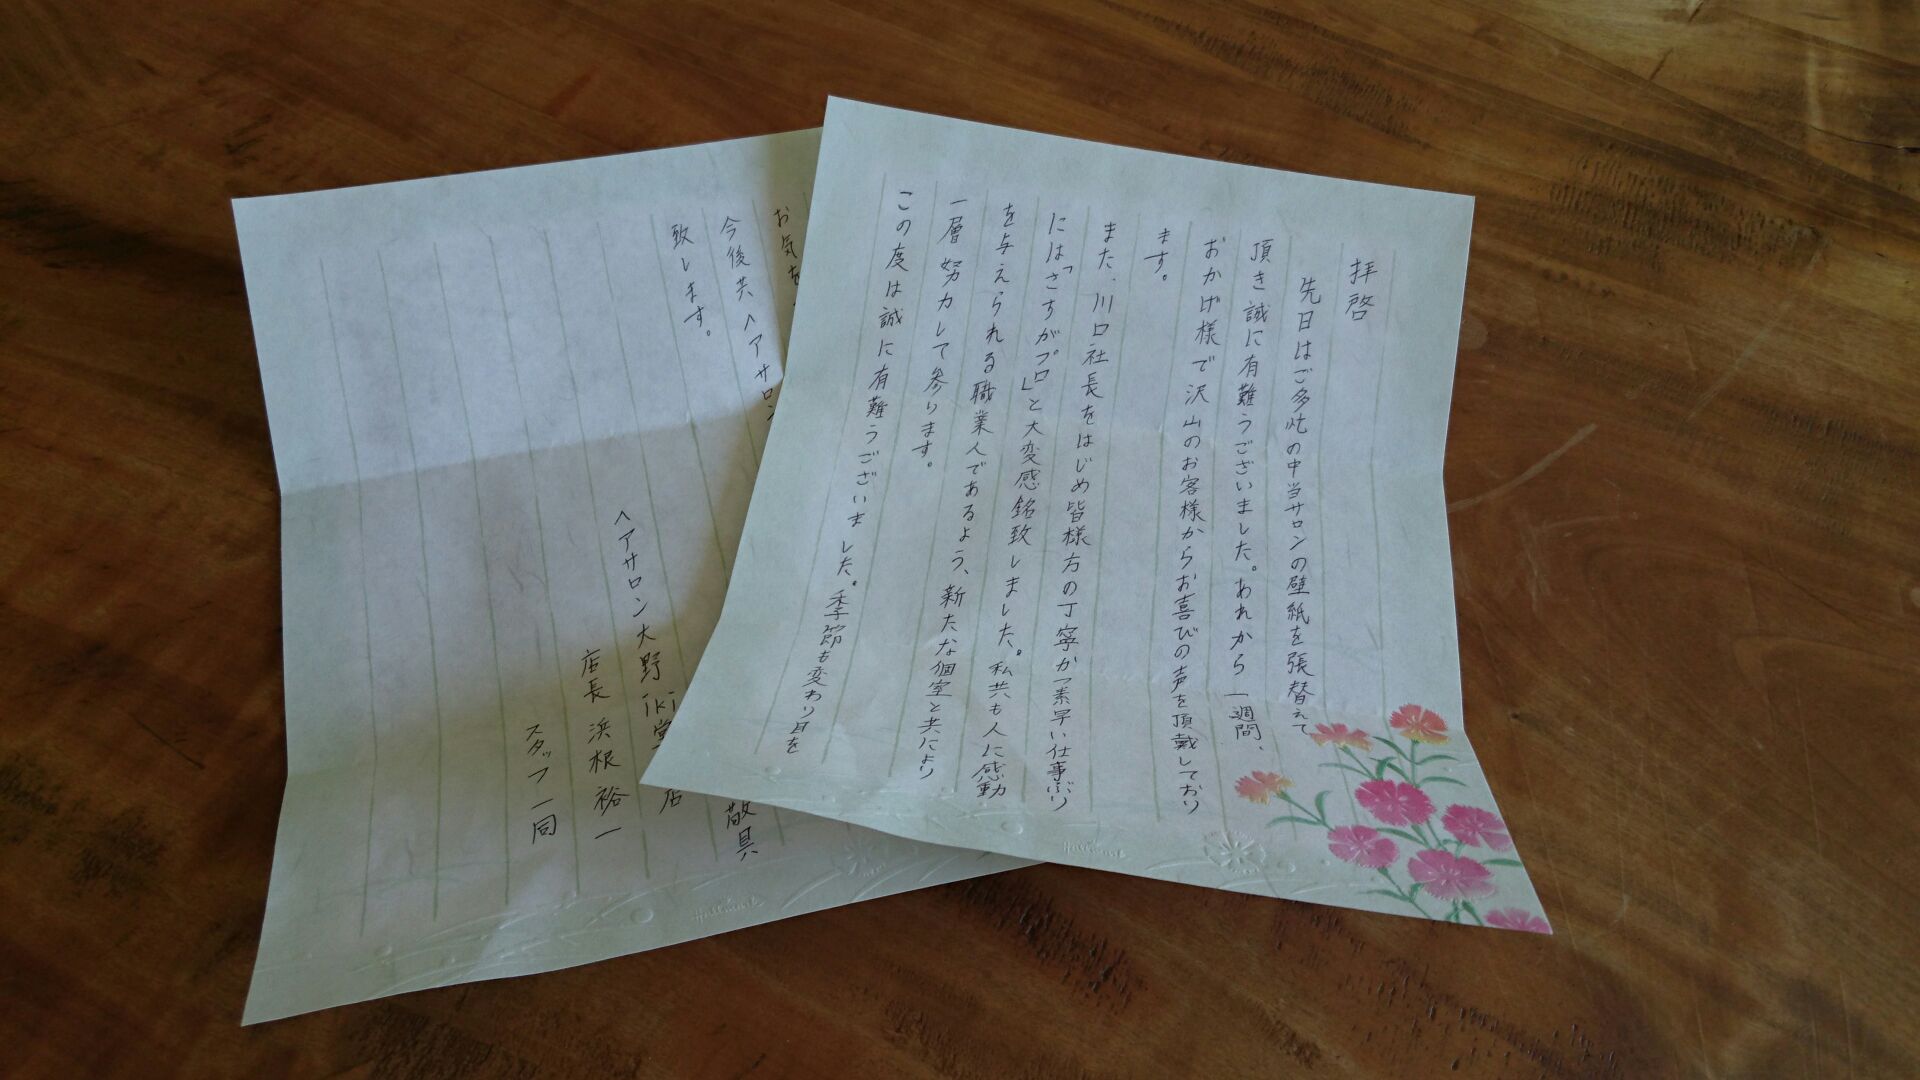 拝啓
先日はご多忙の中当サロンの壁紙を張替えて
頂き誠に有難うございました。あれから一週間、
おかげ様で沢山のお客様からお喜びの声を頂戴しており
ます。
また、川口社長をはじめ皆様方の丁寧かつ素早い仕事ぶり
には「さすがプロ」と大変感銘致しました。私共も人に感動
を与えられる職業人であるよう、新たな個室と共により
一層努力して参ります。
この度は誠に有難うございました。季節も変わり目を
お気を
今後共ヘアサロン
致します。
敬具
ヘアサロン大野iki堂店
店長 浜根裕一
スタッフ一同
Hallmark
Hallmark